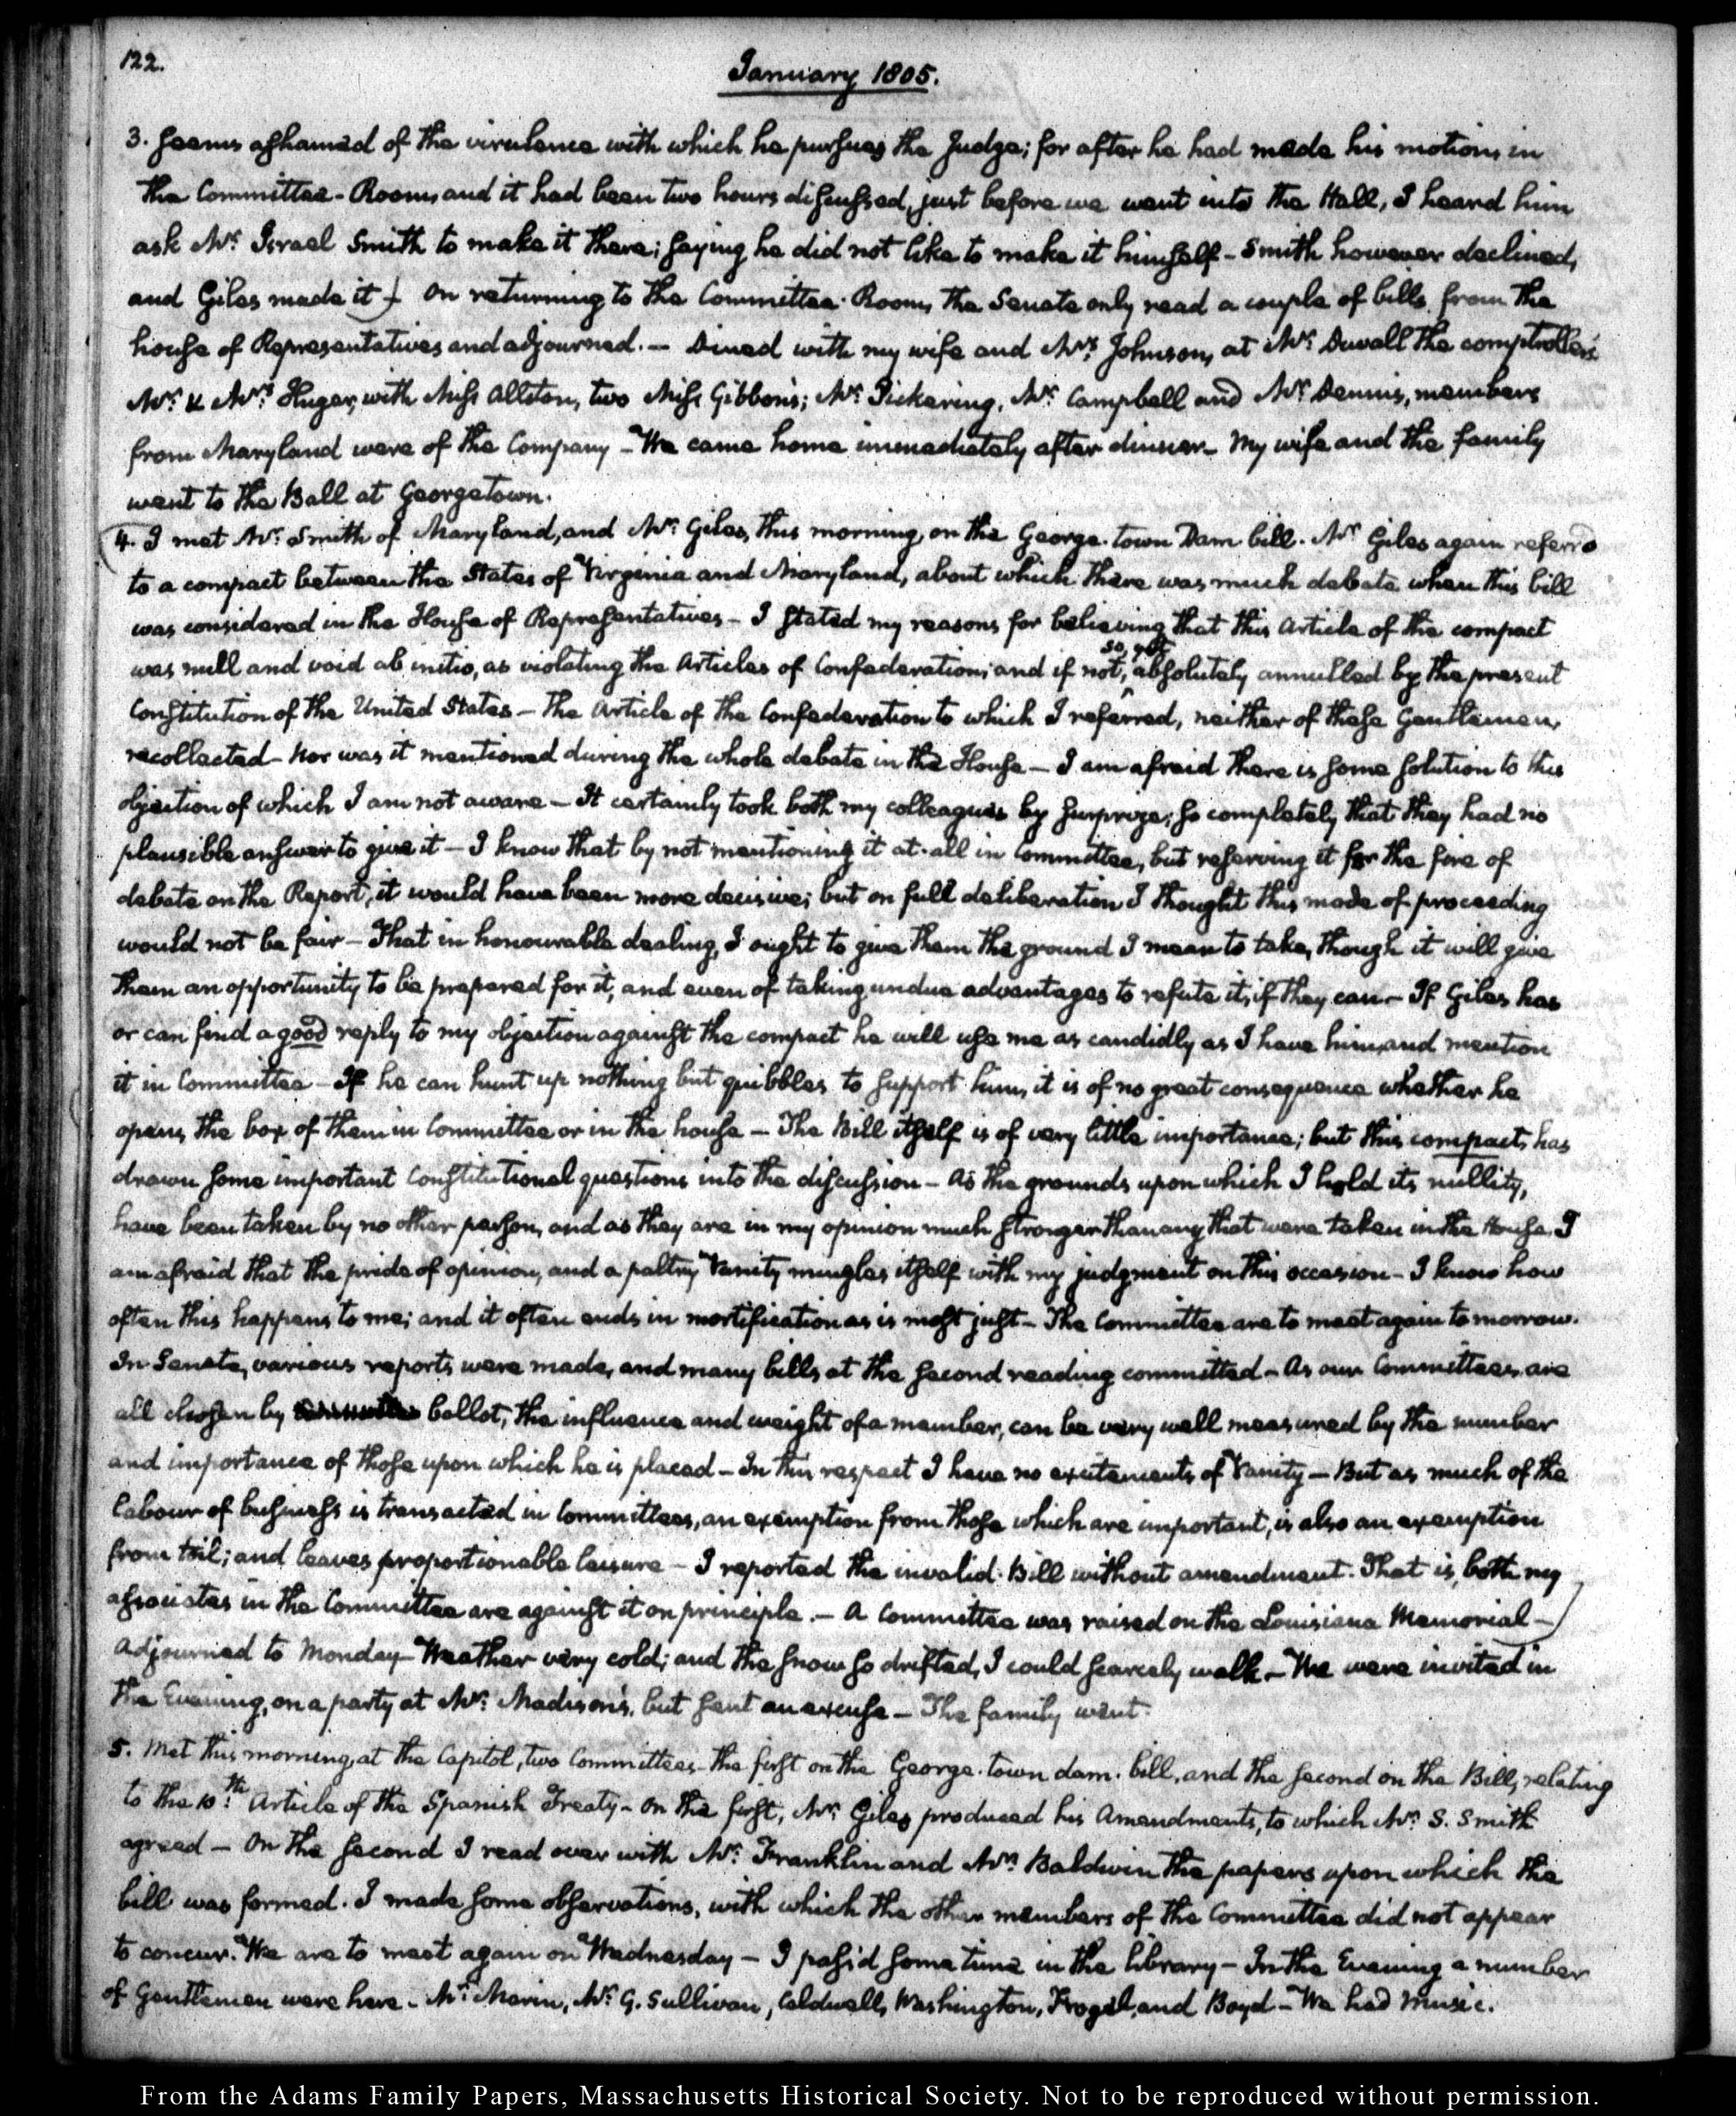 122.
January 1805.
3. seems ashamed of the virulence with which he pursues the Judge; for after he had made his motion, in
the Committee-Room, and it had been two hours discussed, just before we went into the Hall, I heard him
ask Mr. Israel Smith to make it there; saying he did not like to make it himself - Smith however declined,
and Giles made it) On returning to the Committee-Room, the Senate only read a couple of bills, from the
house of Representatives and adjourned. — Dined with my wife and Mrs. Johnson, at Mr. Duvall the comptroller's
Mr. & Mrs. Huger, with Miss Allston, two Miss Gibbons; Mr. Pickering, Mr. Campbell and Mr. Dennis, members
from Maryland were of the Company - We came home immediately after dinner - My wife and the family
went to the Ball at Georgetown.
4. I met Mr. Smith of Maryland, and Mr. Giles, this morning, on the George-town Dam bill. Mr. Giles again referr'd
to a compact between the States of Virginia and Maryland, about which there was much debate when this bill
was considered in the House of Representatives - I stated my reasons for believing that this Article of the compact
was null and void ab initio, as violating the Articles of Confederation; and if not so, yet, absolutely annulled by the present
Constitution of the United States - The Article of the Confederation to which I referred, neither of these Gentlemen,
recollected - Nor was it mentioned during the whole debate in the House - I am afraid there is some solution to this
objection of which I am not aware - It certainly took both my colleagues by surprize; so completely that they had no
plausible answer to give it - I know that by not mentioning it at-all in Committee, but reserving it for the fire of
debate on the Report, it would have been more decisive; but on full deliberation I thought this mode of proceeding
would not be fair - That in honourable dealing, I ought to give them the ground I mean to take, though it will give
them an opportunity to be prepared for it, and even of taking undue advantages to refute it, if they can - If Giles has
or can find a good reply to my objection against the compact he will use me as candidly as I have him, and mention
it in Committee - If he can hunt up nothing but quibbles to support him, it is of no great consequence whether he
opens the box of them in Committee or in the house - The Bill itself is of very little importance; but this compact, has
drawn some important Constitutional questions into the discussion - As the grounds upon which I hold its nullity,
have been taken by no other person, and as they are in my opinion much stronger than any that were taken in the House, I
am afraid that the pride of opinion, and a paltry Vanity mingles itself with my judgment on this occasion - I know how
often this happens to me; and it often ends in mortification as is most just - The Committee are to meet again to morrow.
In Senate, various reports were made, and many bills at the second reading committed - As our Committees are
all chosen by ballot, the influence and weight of a member, can be very well measured by the number
and importance of those upon which he is placed - In this respect I have no excitements of Vanity - But as much of the
labour of business is transacted in Committees, an exemption from those which are important, is also an exemption
from toil; and leaves proportionable leisure - I reported the invalid-Bill without amendment. That is, both my
associates in the Committee are against it on principle. - A Committee was raised on the Louisiana Memorial -)
Adjourned to Monday - Weather very cold; and the snow so drifted, I could scarcely walk - We were invited in
the Evening, on a party at Mr. Madison's, but sent an excuse - The family went.
5. Met this morning, at the Capitol, two Committees - the first on the George-town dam-bill, and the second on the Bill, relating
to the 10th. Article of the Spanish Treaty - On the first, Mr. Giles produced his Amendments, to which Mr. S. Smith
agreed - On the second I read over with Mr. Franklin and Mr. Baldwin the papers upon which the
bill was formed. I made some observations, with which the other members of the Committee did not appear
to concur. We are to meet again on Wednesday - I pass'd some time in the library - In the Evening a number
of Gentlemen were here - Mr. Marin, Mr. G. Sullivan, Caldwell, Washington, and Boyd - We had music.
From the Adams Family Papers, Massachusetts Historical Society. Not to be reproduced without permission.